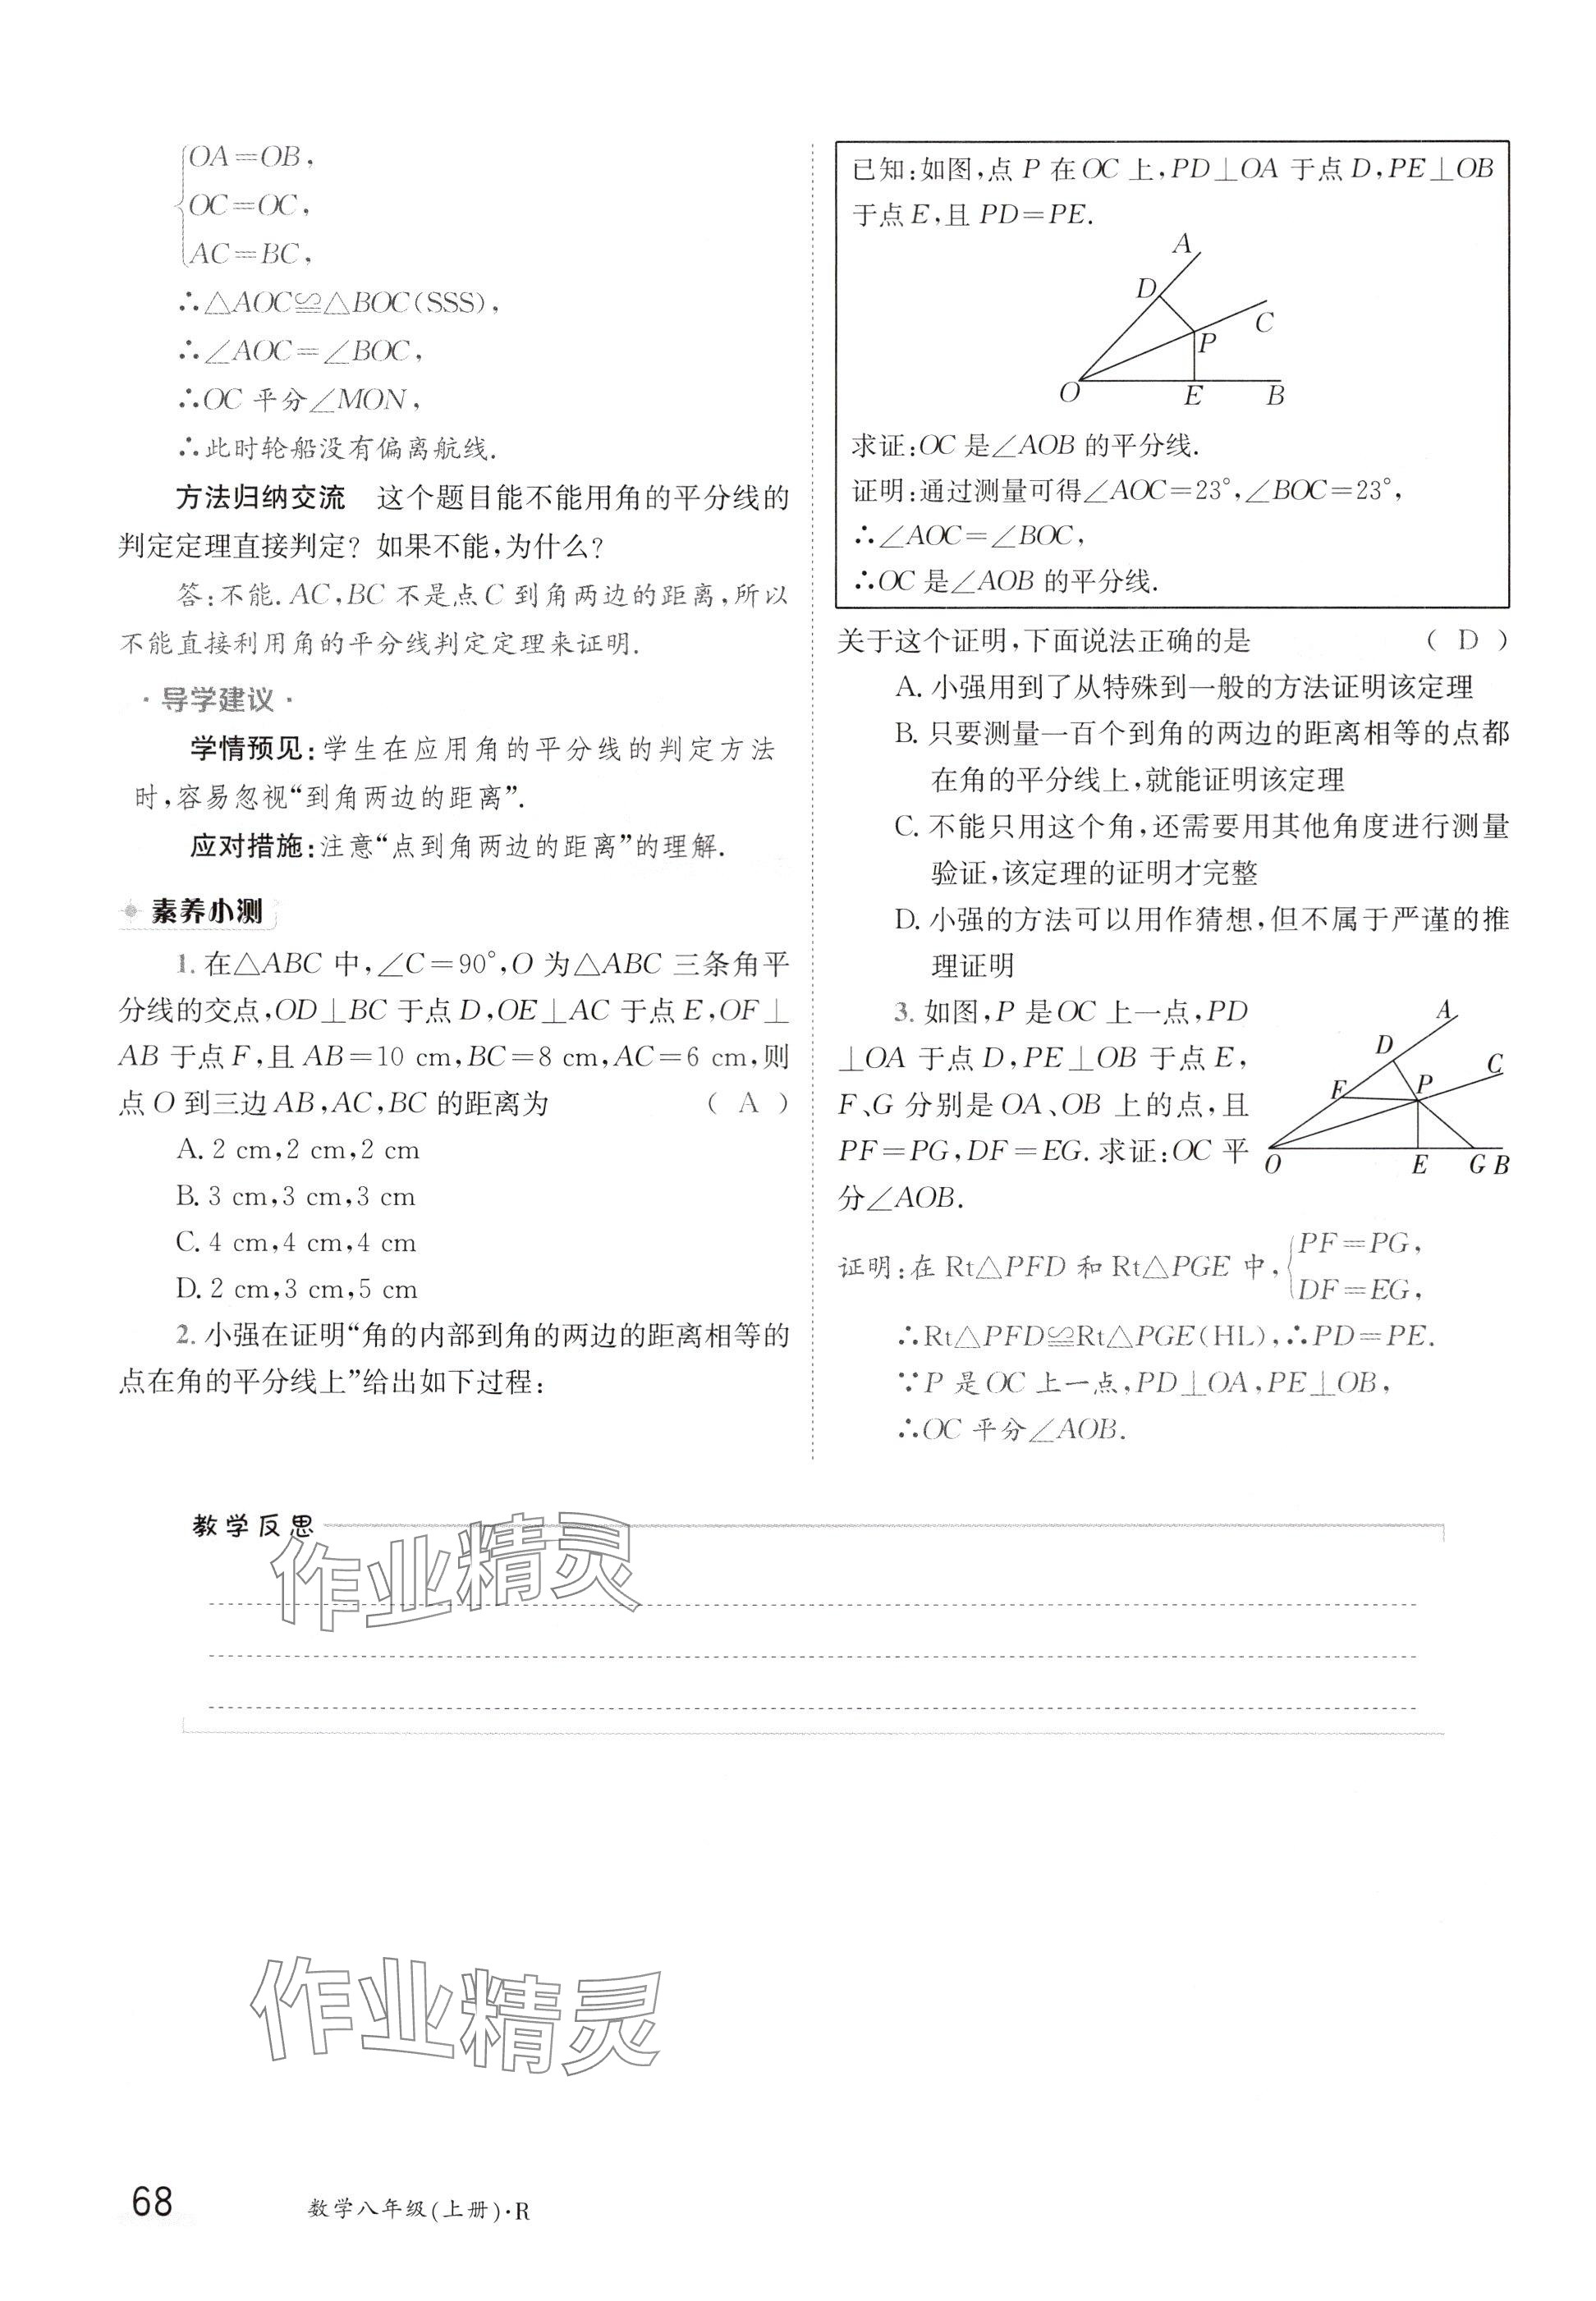 OA＝OB，
OC＝OC，
AC＝BC，
∴△AOC≌△BOC(SSS)，
∴∠AOC＝∠BOC，
∴OC 平分∠MON，
∴此时轮船没有偏离航线.
方法归纳交流　这个题目能不能用角的平分线的
判定定理直接判定？如果不能，为什么？
答：不能. AC，BC 不是点 C 到角两边的距离，所以
不能直接利用角的平分线判定定理来证明.
·导学建议·
学情预见：学生在应用角的平分线的判定方法
时，容易忽视“到角两边的距离”.
应对措施：注意“点到角两边的距离”的理解.
素养小测
1. 在△ABC 中，∠C＝90°，O 为△ABC 三条角平
分线的交点，OD⊥BC 于点 D，OE⊥AC 于点 E，OF⊥
AB 于点 F，且 AB＝10 cm，BC＝8 cm，AC＝6 cm，则
点 O 到三边 AB，AC，BC 的距离为　（ A ）
A. 2 cm，2 cm，2 cm
B. 3 cm，3 cm，3 cm
C. 4 cm，4 cm，4 cm
D. 2 cm，3 cm，5 cm
2. 小强在证明“角的内部到角的两边的距离相等的
点在角的平分线上”给出如下过程：
已知：如图，点 P 在 OC 上，PD⊥OA 于点 D，PE⊥OB
于点 E，且 PD＝PE.
A
D
C
P
O E B
求证：OC 是∠AOB 的平分线.
证明：通过测量可得∠AOC＝23°，∠BOC＝23°，
∴∠AOC＝∠BOC，
∴OC 是∠AOB 的平分线.
关于这个证明，下面说法正确的是　（ D ）
A. 小强用到了从特殊到一般的方法证明该定理
B. 只要测量一百个到角的两边的距离相等的点都
在角的平分线上，就能证明该定理
C. 不能只用这个角，还需要用其他角度进行测量
验证，该定理的证明才完整
D. 小强的方法可以用作猜想，但不属于严谨的推
理证明
3. 如图，P 是 OC 上一点，PD
⊥OA 于点 D，PE⊥OB 于点 E，
F、G 分别是 OA、OB 上的点，且
PF＝PG，DF＝EG. 求证：OC 平
分∠AOB.
A
D
C
F P
O E G B
证明：在 Rt△PFD 和 Rt△PGE 中，
PF＝PG，
DF＝EG，
∴Rt△PFD≌Rt△PGE(HL)，∴PD＝PE.
∵P 是 OC 上一点，PD⊥OA，PE⊥OB，
∴OC 平分∠AOB.
教学反思
作业精灵
作业精灵
68
数学八年级(上册)·R